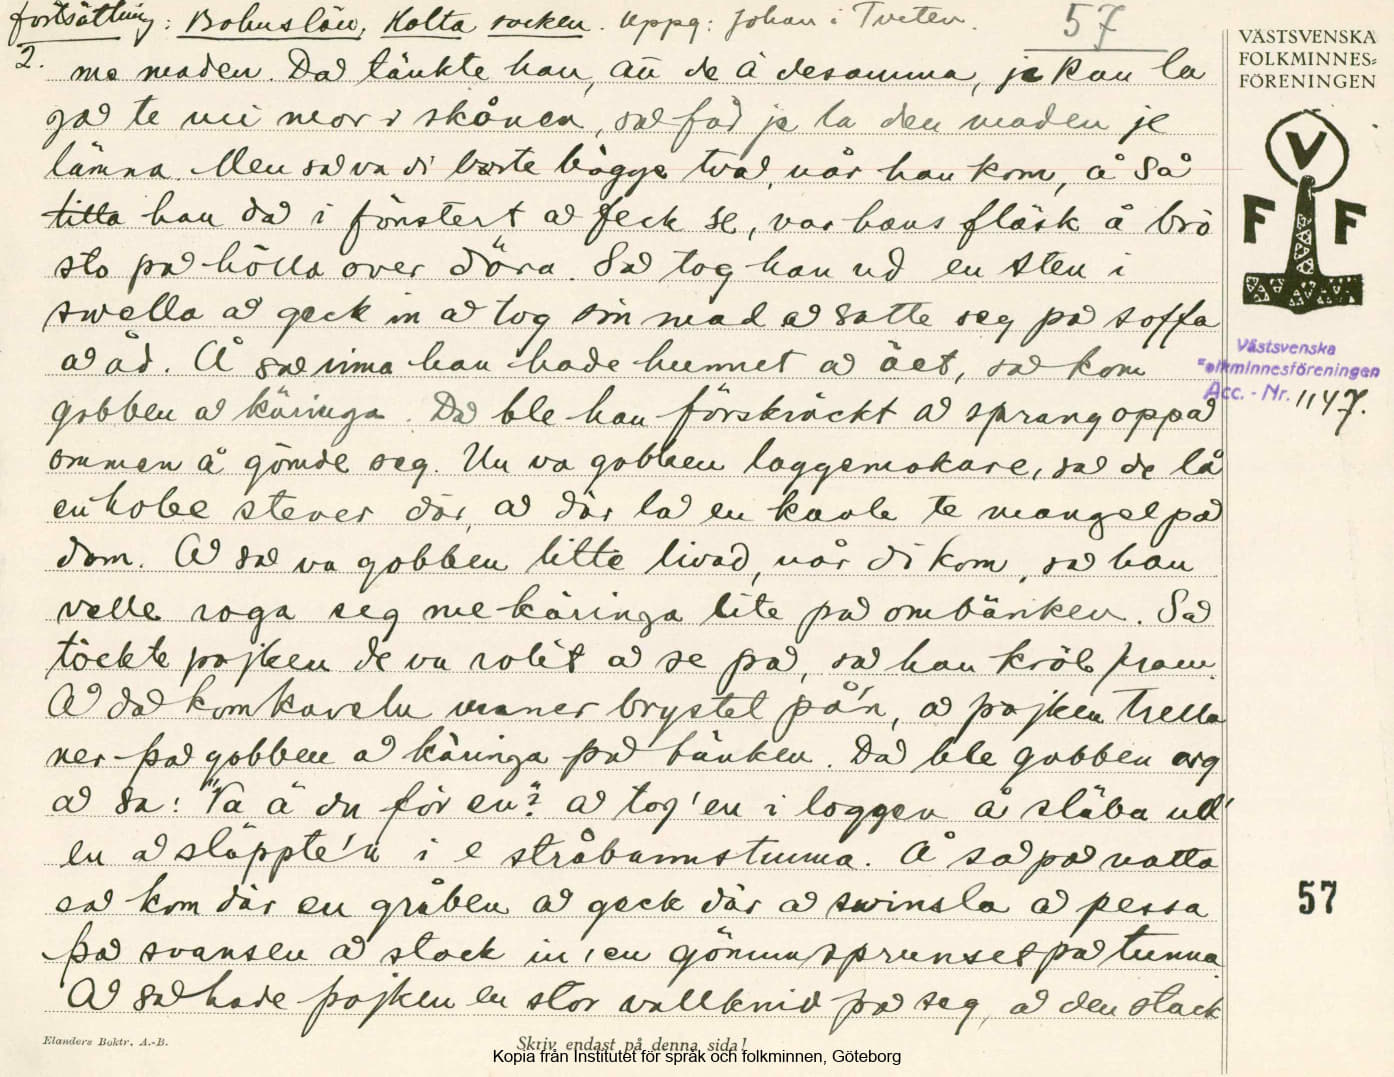 fortsättning: Bohuslän, Kalta socken. Uppg: Johan i Tveten.
57
2.
me maden. Då tänkte han, än de ä desamma, je kan la
gå te mi mor i skånen, så får je la den maden je
lämna. Men så va di borte bägge två, når han kom, å så
titta han då i fönstert å feck se, var hans fläsk å brö
sto på hölla over döra. Så tog han ud en sten i
swella å geck in å tog sin mad å satte seg på soffa
å åd. Å så inna han hade hunnet å äet, så kom
gobben å käringa. Då ble han förskräckt å sprang oppå
ommen å gömde seg. Nu va gobben laggemakare, så de lå
en hobe stever där, å där lå en kavle te mangel på
dom. Å så va gobben litte livad, når di kom, så han
velle roga seg me käringa lite på ombänken. Så
töckte pojken de va rolit å se på, så han kröb fram.
Å då kom kaveln unner brystet på'n, å pojken trella
ner på gobben å käringa på bänken. Då ble gobben arg
å sa: "Va ä du för en"? å tog'en i loggen å släba ud'
en å släppte'n i e stråbannstunna. Å så på natta
så kom där en gråben å geck där å swinsla å pessa
på svansen å stack in'en gönnu sprunset på tunna.
Å så hade pojken en stor vallkniv på seg, å den stack
VÄSTSVENSKA
FOLKMINNES=
FÖRENINGEN
V
F F
Västsvenska
Folkminnesföreningen
Acc. - Nr. 1147.
57
Elanders Boktr. A.-B.
Skriv endast på denna sida!
Kopia från Institutet för språk och folkminnen, Göteborg